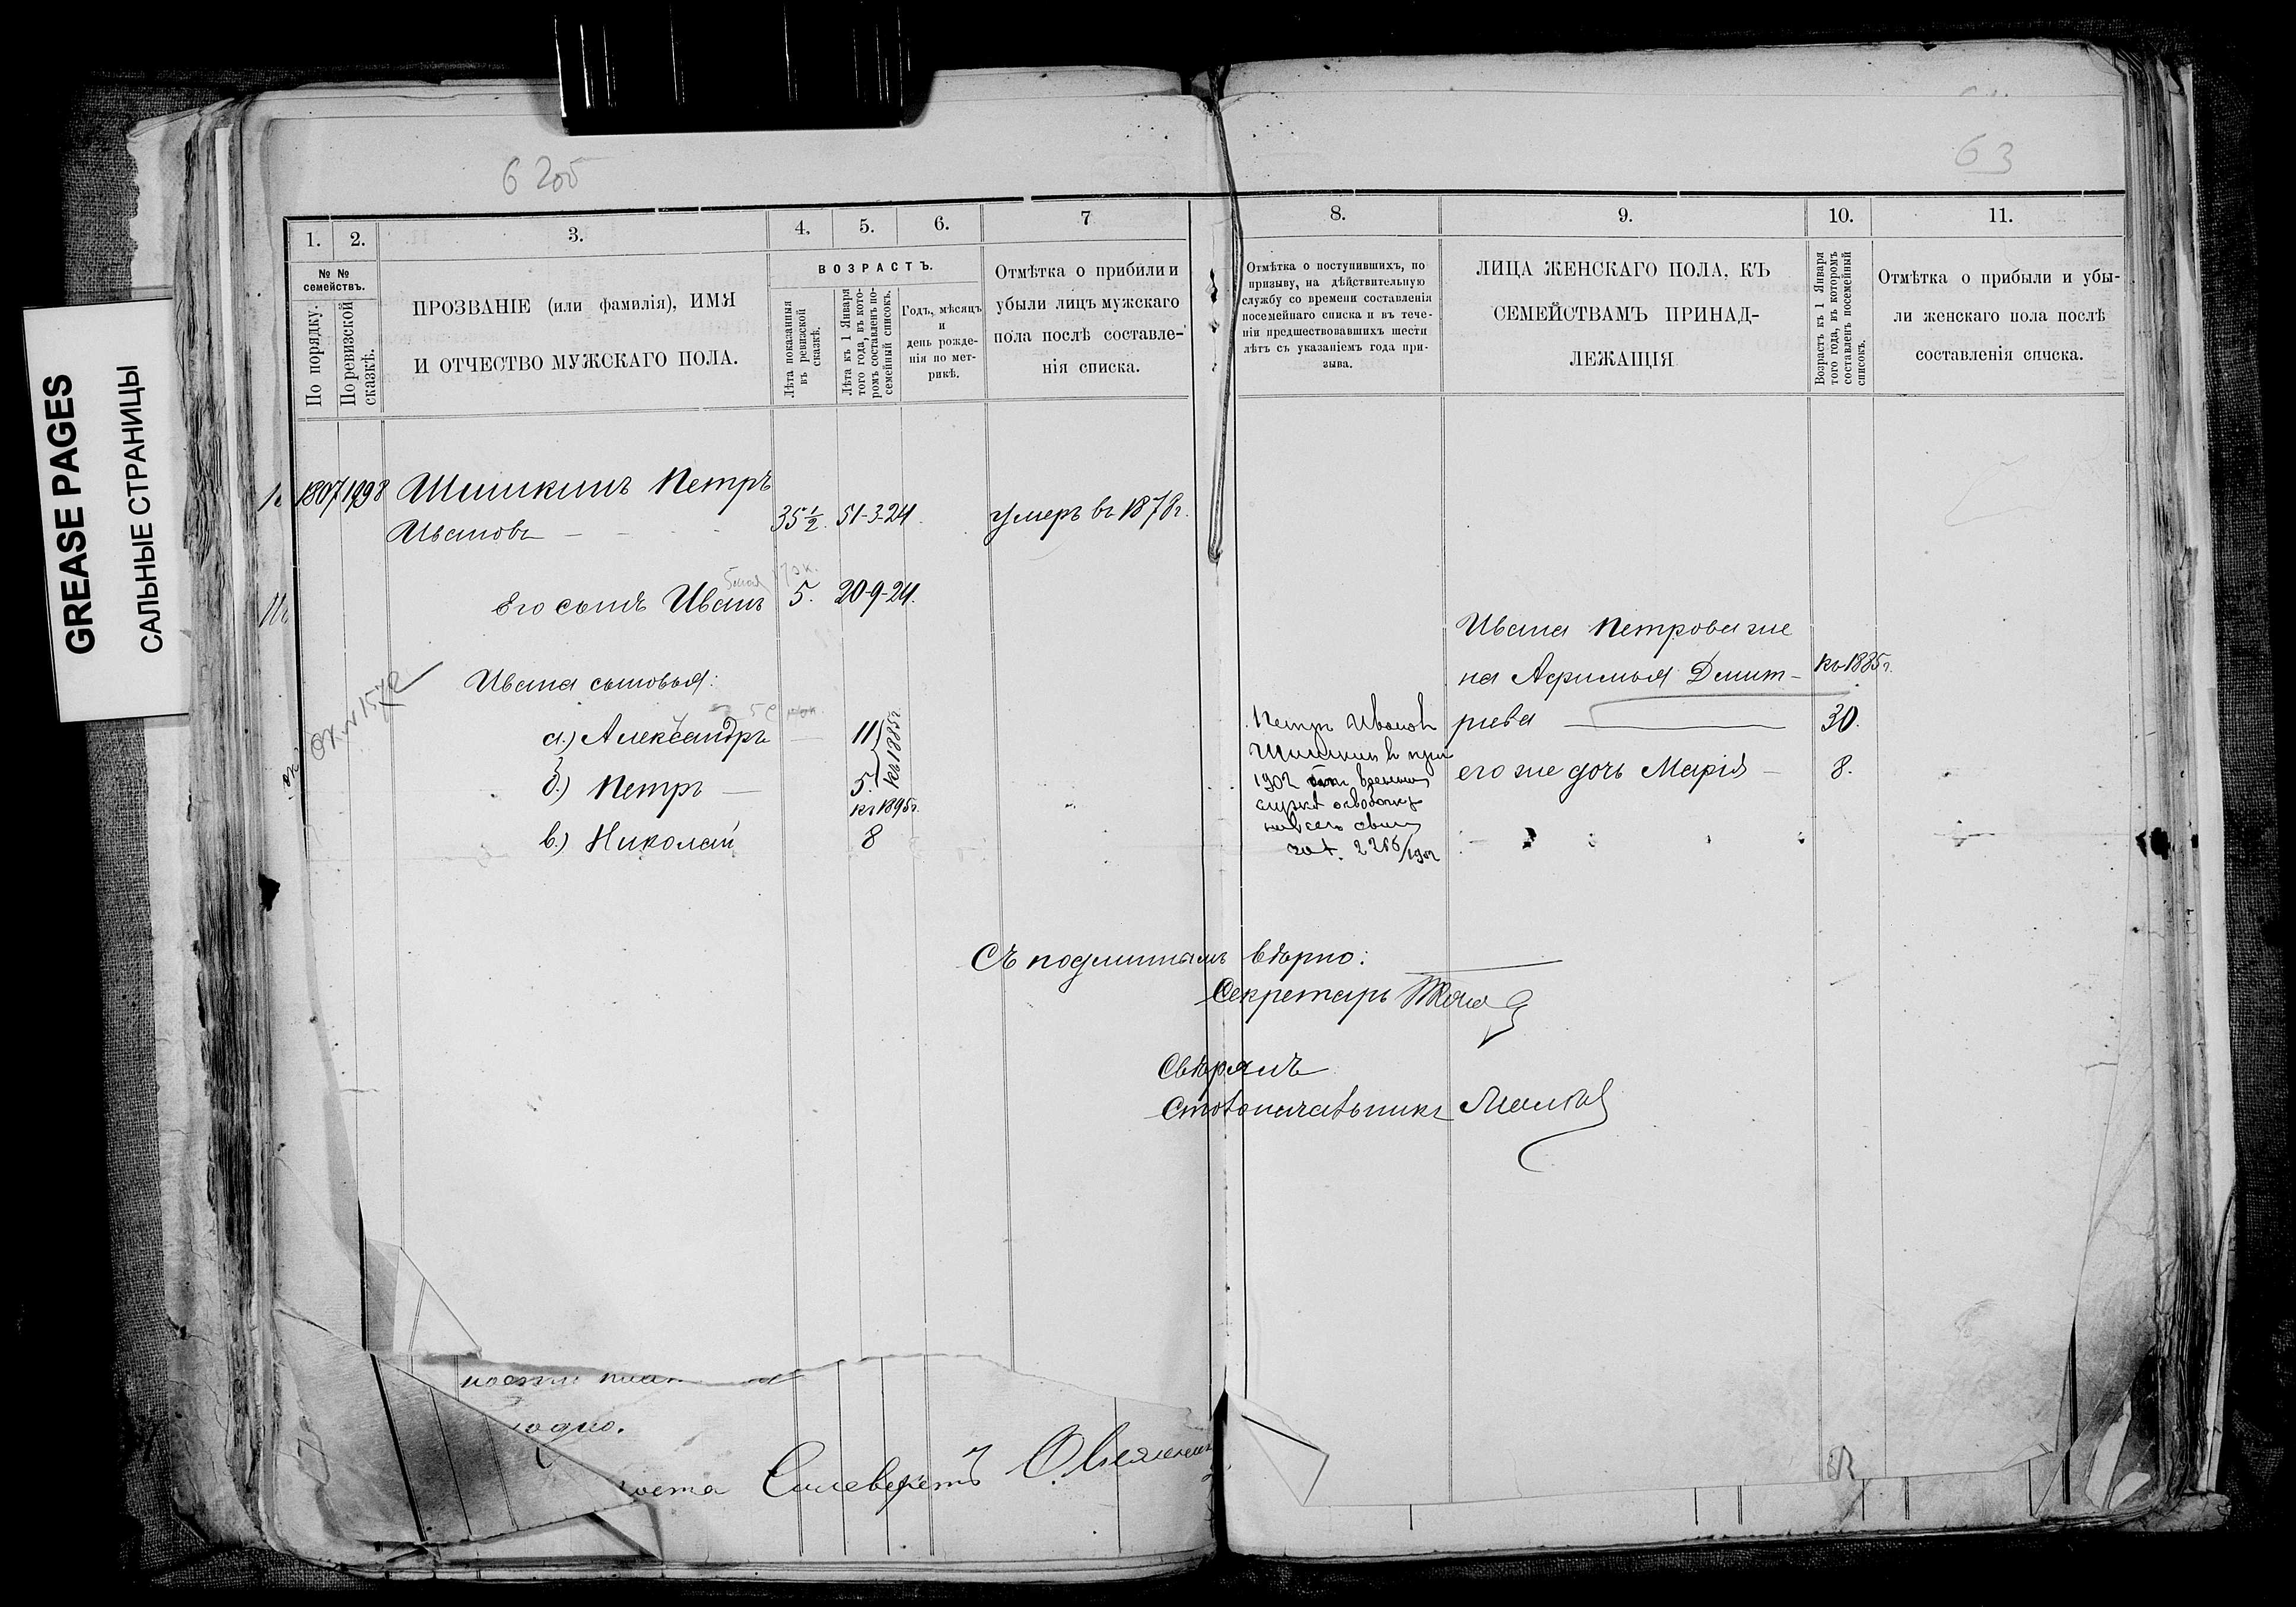 GREASE PAGES
САЛЬНЫЕ СТРАНИЦЫ
63
1.
2.
3.
4.
5.
6.
7
№ № семействъ.
По порядку.
По ревизской сказкѣ.
ПРОЗВАНІЕ (или фамилія), ИМЯ
И ОТЧЕСТВО МУЖСКАГО ПОЛА.
ВОЗРАСТЪ.
Лѣта показанныя въ ревизской сказкѣ.
Лѣта къ 1 Января того года, въ которомъ составленъ посемейный списокъ.
Годъ, мѣсяцъ
и
день рожде-
нія по мет-
рикѣ.
Отмѣтка о прибыли и
убыли лицъ мужскаго
пола послѣ составле-
нія списка.
1807 1998 Шишкинъ Петръ
Ивановъ 35½. 51-3-24. умеръ въ 1878г.
Его сынъ Иванъ 5. 20-9-24.
Ивана сыновья:
а.) Александръ 11
къ 1885г.
б.) Петръ — 5.
къ 1895г.
в.) Николай 8
8.
9.
10.
11.
Отмѣтка о поступившихъ, по
призыву, на дѣйствительную
службу со времени составленія
посемейнаго списка и въ тече-
ніи предшествовавшихъ шести
лѣтъ съ указаніемъ года при-
зыва.
ЛИЦА ЖЕНСКАГО ПОЛА, КЪ
СЕМЕЙСТВАМЪ ПРИНАД-
ЛЕЖАЩІЯ
Возрастъ къ 1 Января того года, въ которомъ составленъ посемейный списокъ.
Отмѣтка о прибыли и убы-
ли женскаго пола послѣ
составленія списка.
Ивана Петрова же
на Афимья Дмит- къ 1885г.
ріева 30.
его же дочь Марія — 8.
Петръ Иванов
Шишкин
1902
2286/1902
Съ подлиннымъ вѣрно:
Секретарь
Свѣрялъ
Столоначальникъ